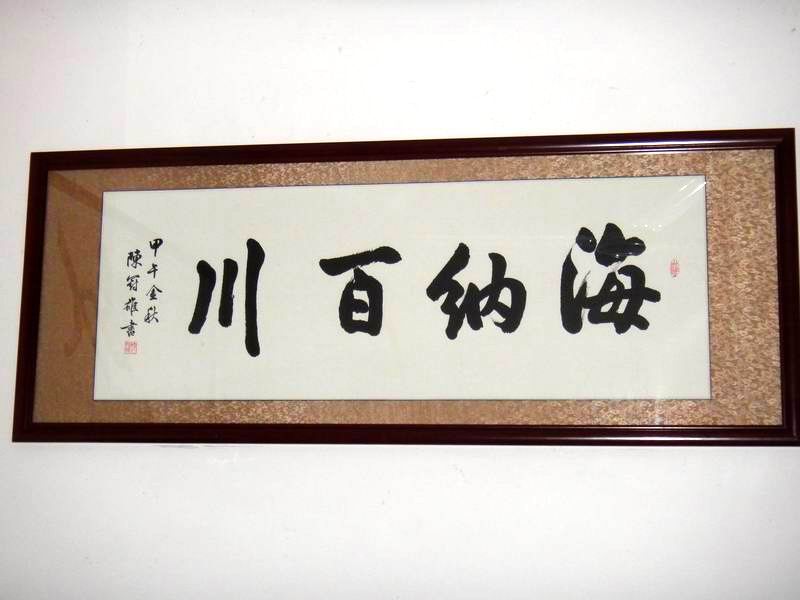 海纳百川
甲午金秋
陳冠雄書